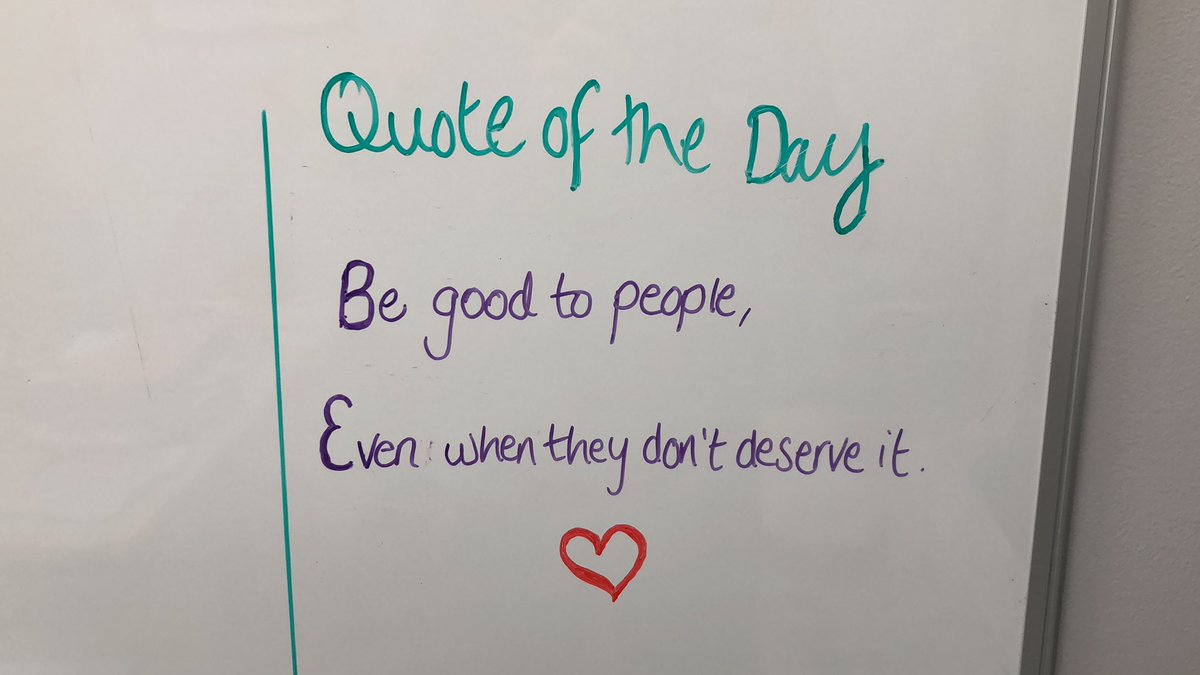 Quote of the Day
Be good to people,
Even when they don't deserve it.